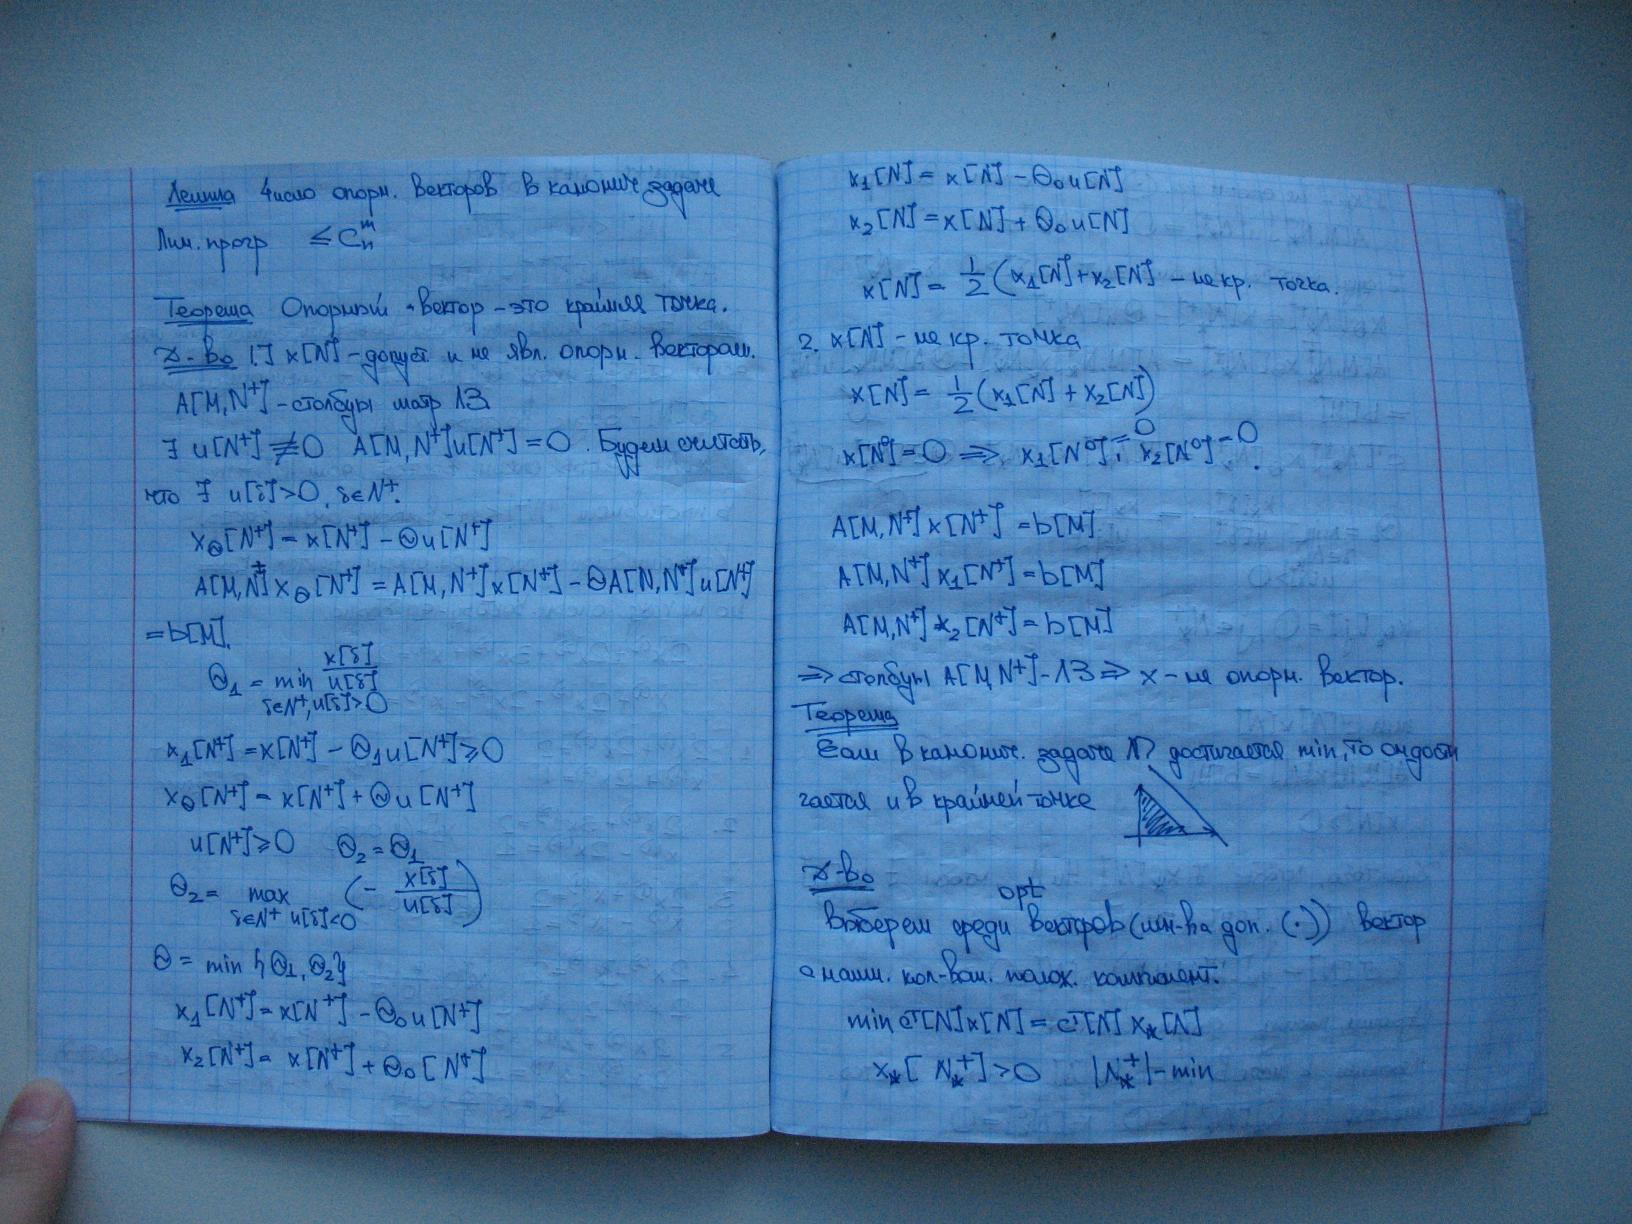 Лемма Число опорн. векторов в канонич. задаче
Лин. прогр ≤ C_n^m
Теорема Опорный вектор – это крайняя точка.
Д-во 1.] x[N] – допуст и не явл. опорн. вектором.
A[M,N⁺] – столбцы матр ЛЗ
∃ u[N⁺] ≠ 0 A[M,N⁺]u[N⁺] = 0. Будем считать,
что ∃ u[δ]>0, δ∈N⁺.
x_Θ[N⁺] = x[N⁺] – Θu[N⁺]
A[M,N⁺]x_Θ[N⁺] = A[M,N⁺]x[N⁺] – ΘA[N,N⁺]u[N⁺]
= b[M].
Θ₁ = min x[δ]/u[δ]
δ∈N⁺, u[δ]>0
x₁[N⁺] = x[N⁺] – Θ₁u[N⁺] ≥ 0
x_Θ[N⁺] = x[N⁺] + Θu[N⁺]
u[N⁺] ≥ 0 Θ₂ = Θ₁
Θ₂ = max (– x[δ]/u[δ])
δ∈N⁺ u[δ]<0
Θ = min {Θ₁, Θ₂}
x₁[N⁺] = x[N⁺] – Θ₀u[N⁺]
x₂[N⁺] = x[N⁺] + Θ₀[N⁺]
x₁[N] = x[N] – Θ₀u[N]
x₂[N] = x[N] + Θ₀u[N]
x[N] = 1/2 (x₁[N] + x₂[N] – не кр. точка.
2. x[N] – не кр. точка
x[N] = 1/2 (x₁[N] + x₂[N])
x[N⁰] = 0 ⇒ x₁[N⁰] = 0, x₂[N⁰] = 0.
A[M,N⁺]x[N⁺] = b[M]
A[M,N⁺]x₁[N⁺] = b[M]
A[M,N⁺]x₂[N⁺] = b[M]
⇒ столбцы A[M,N⁺] – ЛЗ ⇒ x – не опорн. вектор.
Теорема
Если в канонич. задаче ЛП достигается min, то он дости
гается и в крайней точке
Д-во
opt
Выберем среди векторов (мн-ва доп. (·)) вектор
с наим. кол-вом. полож. компонент.
min cᵀ[N]x[N] = cᵀ[N] x_*[N]
x_*[N_*⁺] > 0 |N_*⁺| – min